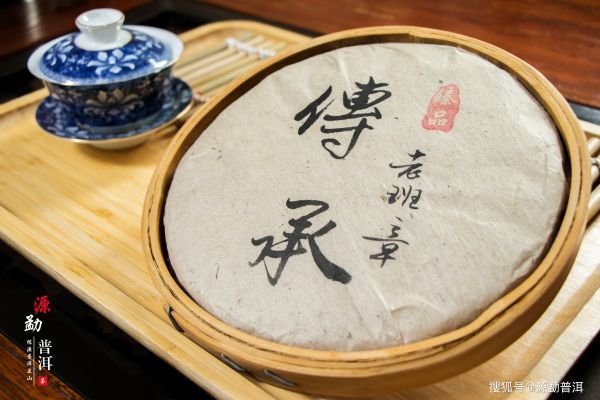 傳承
老班章
品
源勐
普洱
茶
搜狐号@源勐普洱